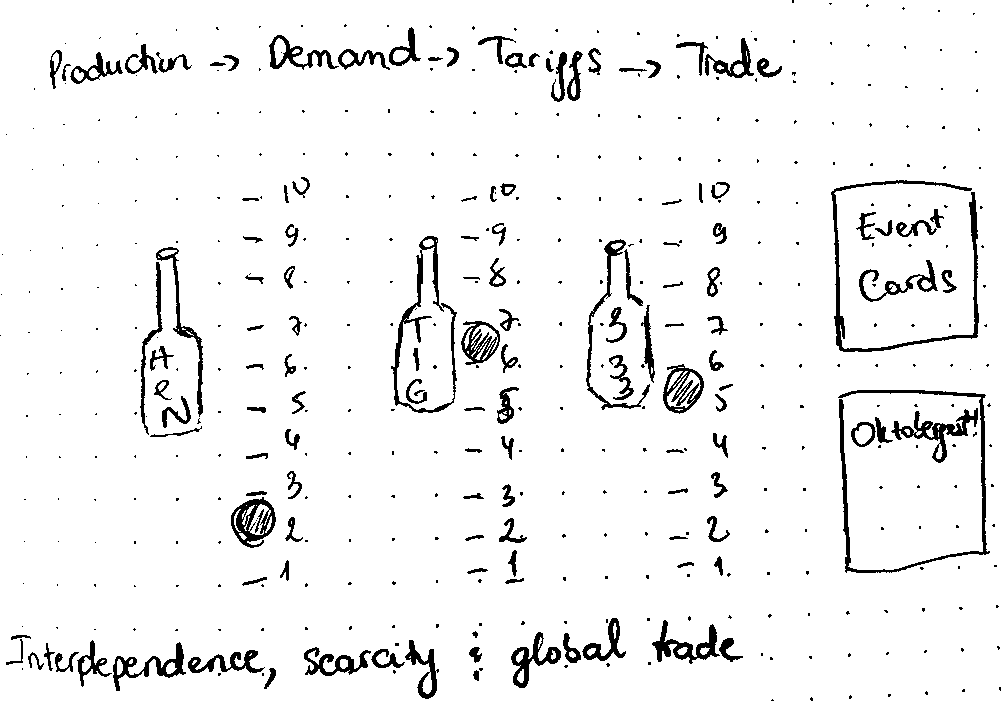 Production -> Demand -> Tariffs -> Trade
10 10 10
9 9 9
8 8 8
7 7 7
6 6 6
5 5 5
4 4 4
3 3 3
2 2 2
1 1 1
HEN
TIG
333
Event
Cards
Oktobegest!
Interdependence, scarcity & global trade